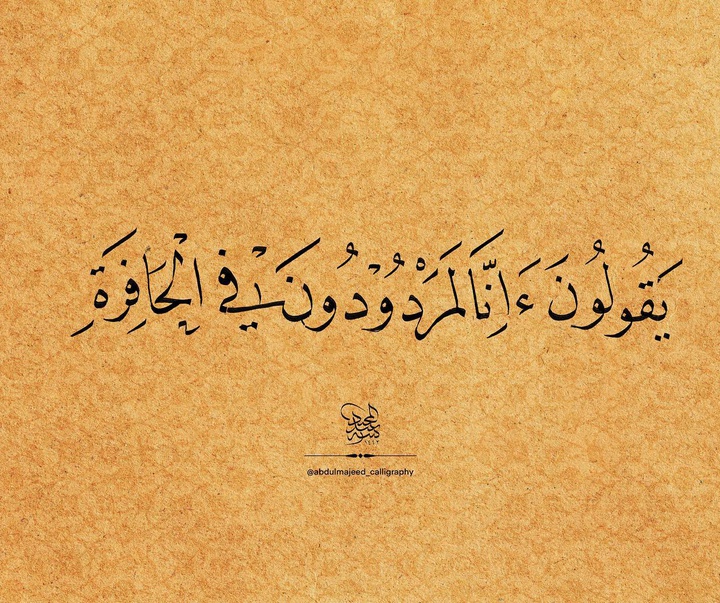 يَقُولُونَ ءَاِنَّا لَمَرْدُوْدُونَ فِي الْحَافِرَةِ
@abdulmajeed_calligraphy